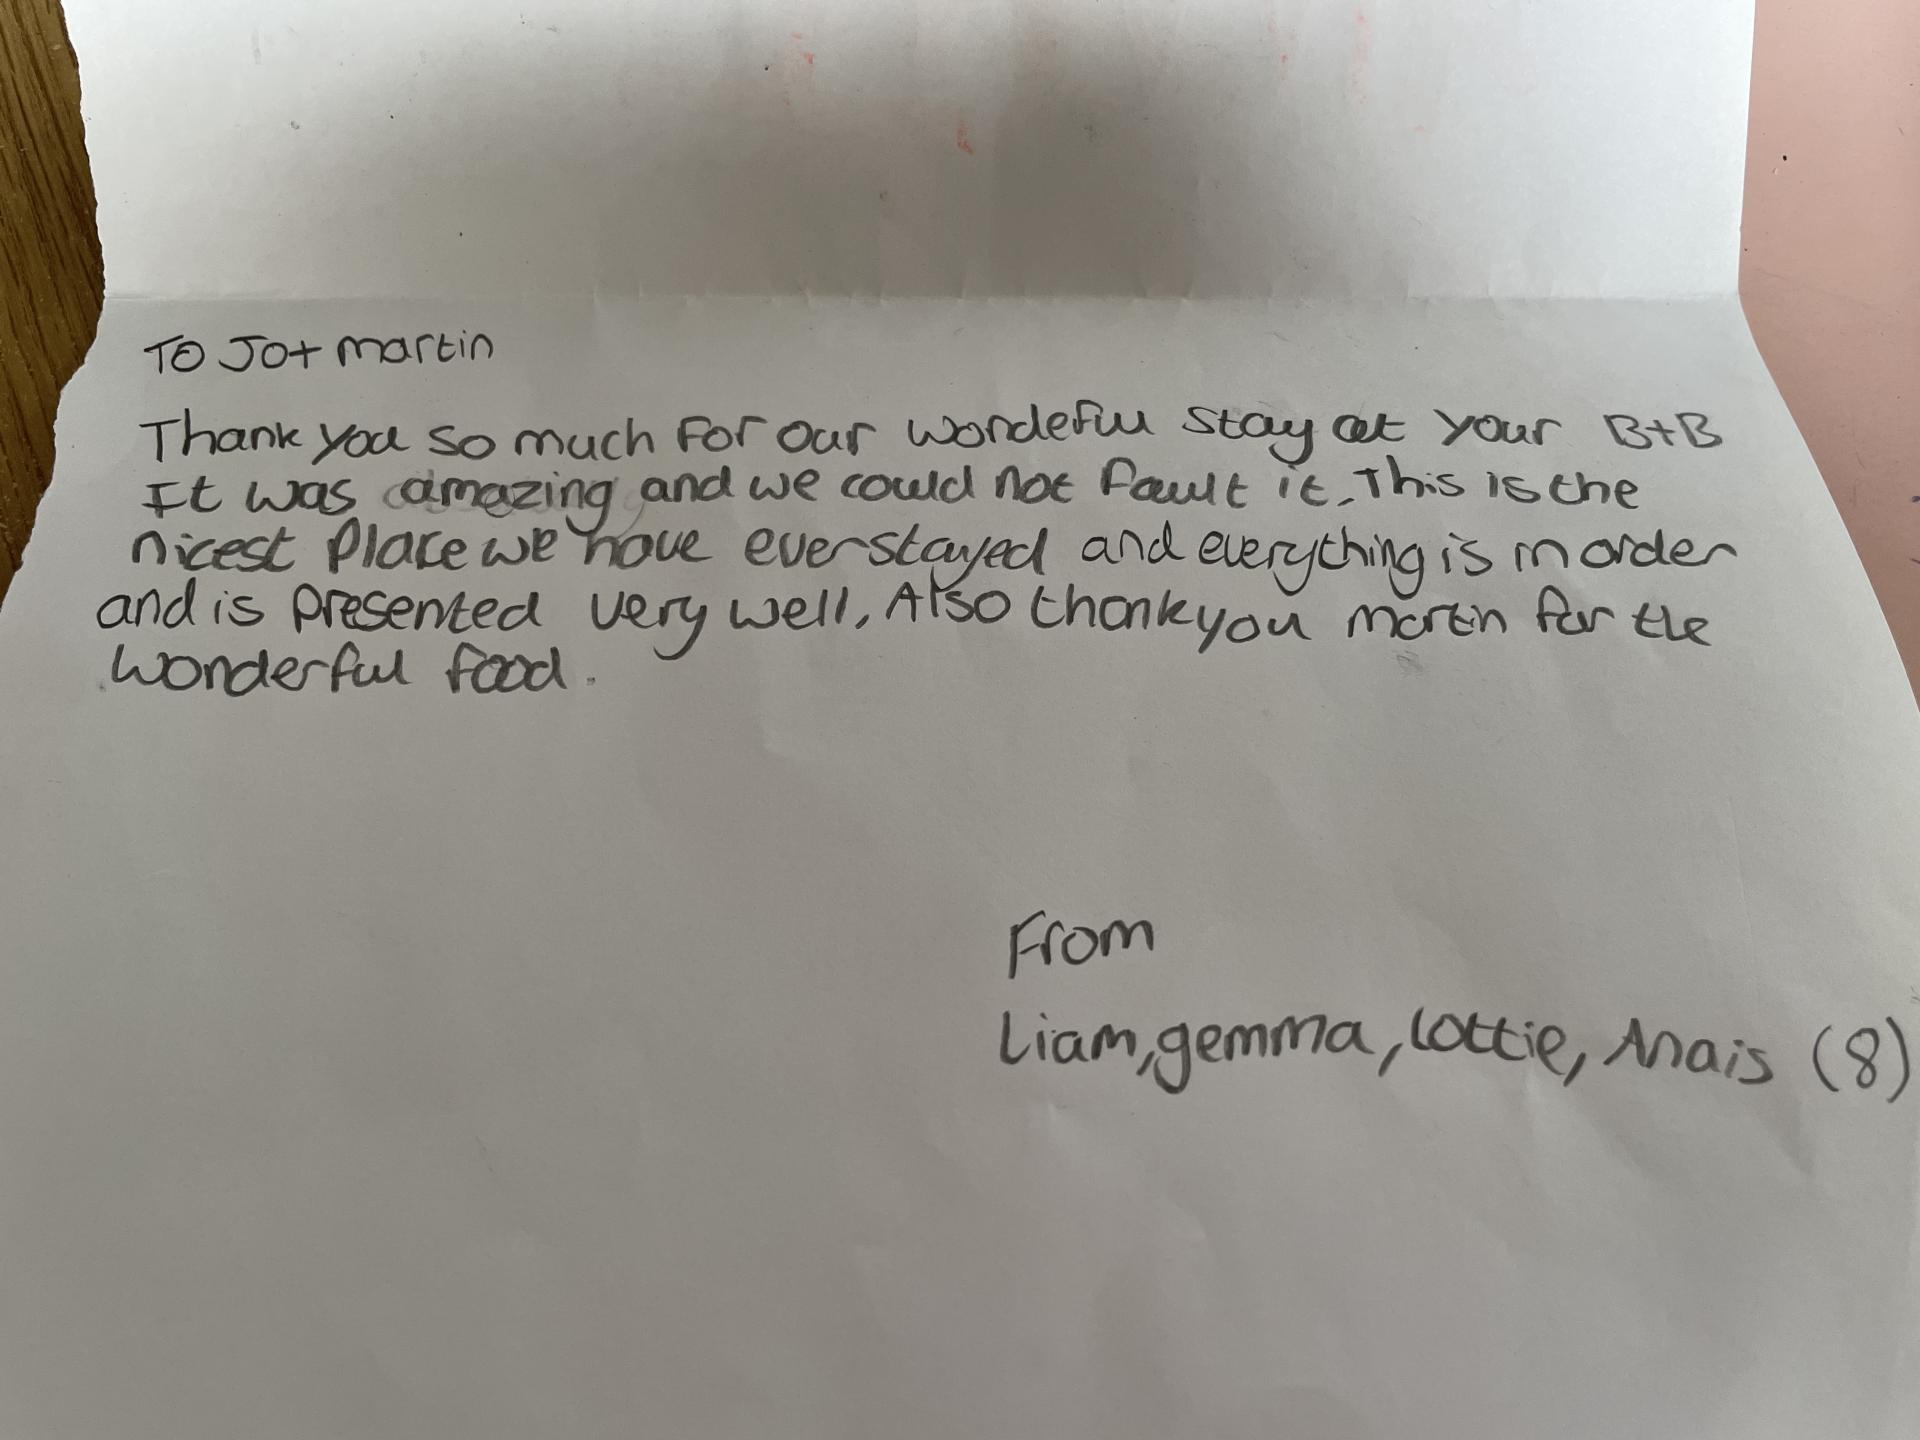 To Jo + martin
Thank you so much for our wondefuu stay at your B+B
It was amazing and we could not fault it. This is the
nicest Place we have ever stayed and everything is in order
and is presented very well, Also thankyou martin for the
wonderful food.
From
Liam, gemma, Lottie, Anais (8)